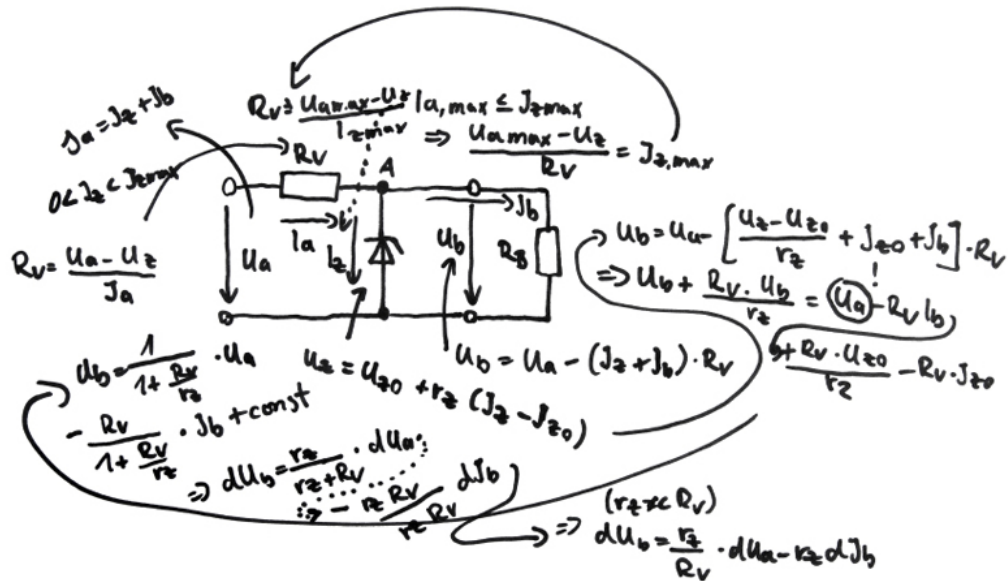 Rv ≥ (Ua max - Uz) / Iz max   Ia,max ≤ Jz max
⇒ (Ua max - Uz) / Rv = Jz,max
Ja = Jz + Jb
0 < Jz < Jz max
Rv = (Ua - Uz) / Ja
Rv
A
Ia
Iz
Jb
Ua
Ub
RB
Ub = Ua - [(Uz - Uz0) / rz + Jz0 + Jb] · Rv
⇒ Ub + (Rv · Ub) / rz = Ua - Rv Ib
+ (Rv · Uz0) / rz - Rv · Jz0
Ub = Ua - (Jz + Jb) · Rv
Uz = Uz0 + rz (Jz - Jz0)
Ub = 1 / (1 + Rv / rz) · Ua
- Rv / (1 + Rv / rz) · Jb + const
⇒ dUb = rz / (rz + Rv) · dUa
- rz Rv / rz Rv dJb
⇒ (rz << Rv)
dUb = rz / Rv · dUa - rz dJb